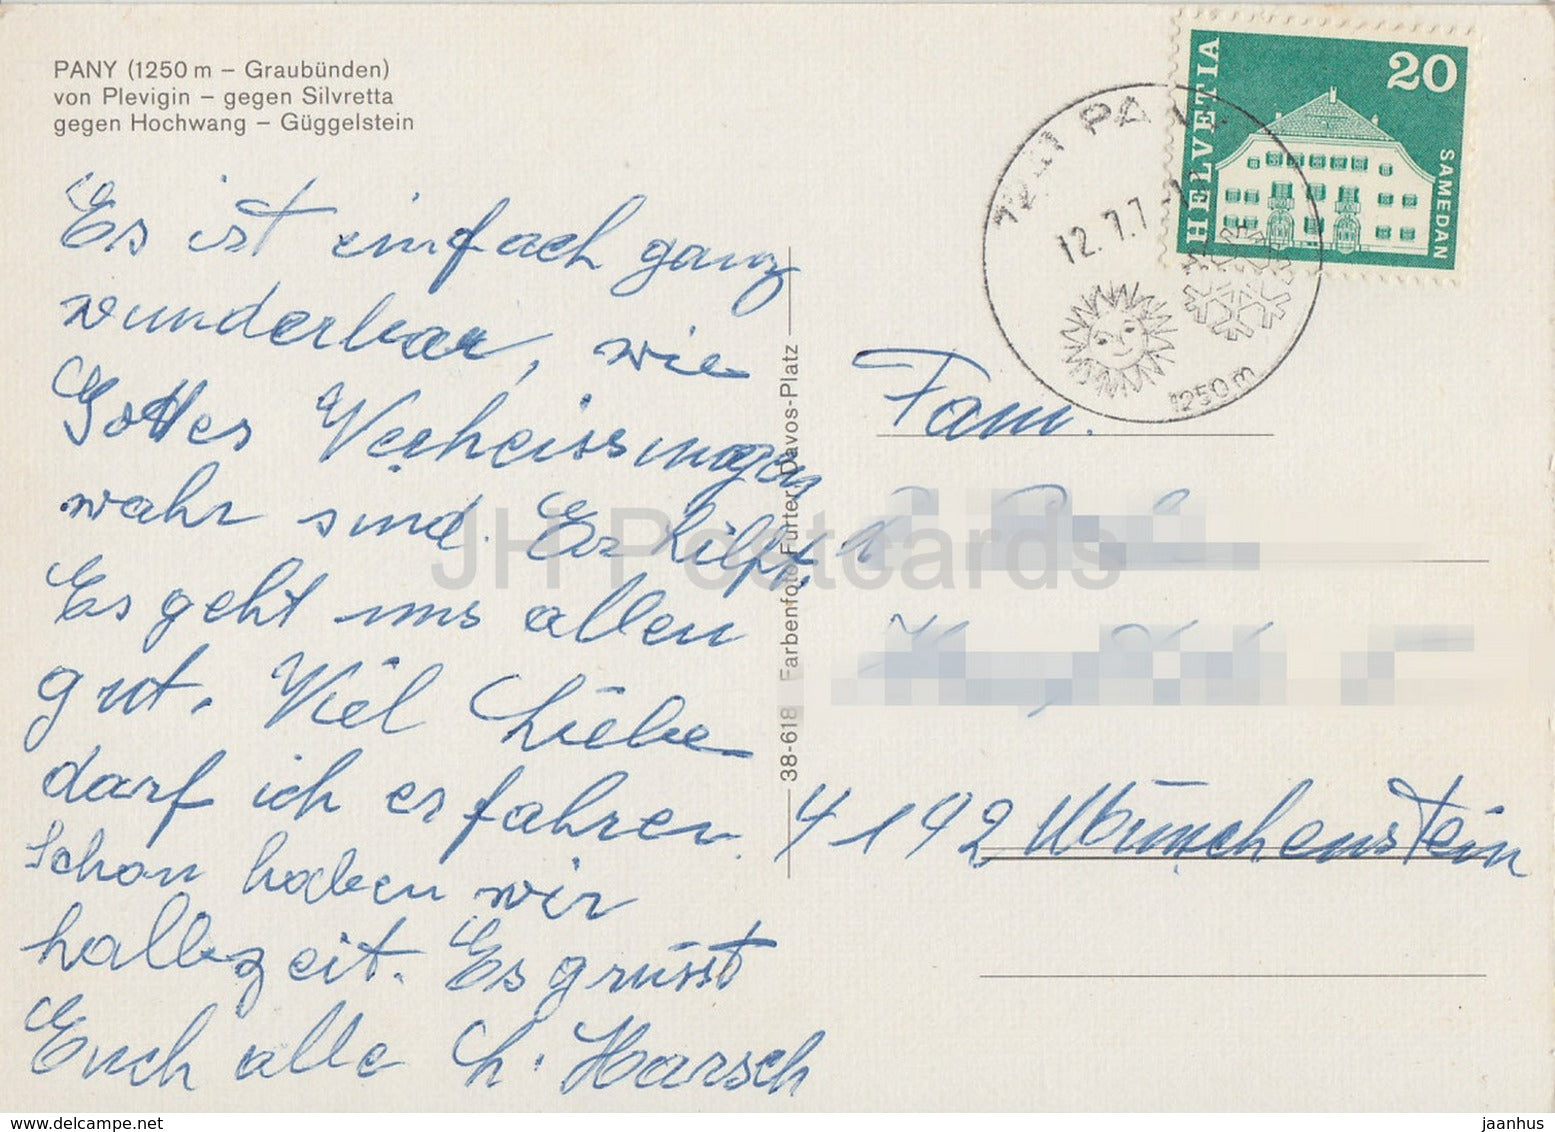 PANY (1250 m – Graubünden)
von Plevigin – gegen Silvretta
gegen Hochwang – Güggelstein
Es ist einfach ganz
wunderbar, wie
Gottes Verheissungen
wahr sind. Er hilft,
Es geht uns allen
gut. Viel Liebe
darf ich erfahren.
Schon haben wir
halbzeit. Es grüsst
Euch alle h. Harsch
38-618 Farbenfoto Furter, Davos-Platz
HELVETIA
20
SAMEDAN
12.7.7
1250 m
Fam.
4142 Münchenstein
JH Postcards
delcampe.net
jaanhus